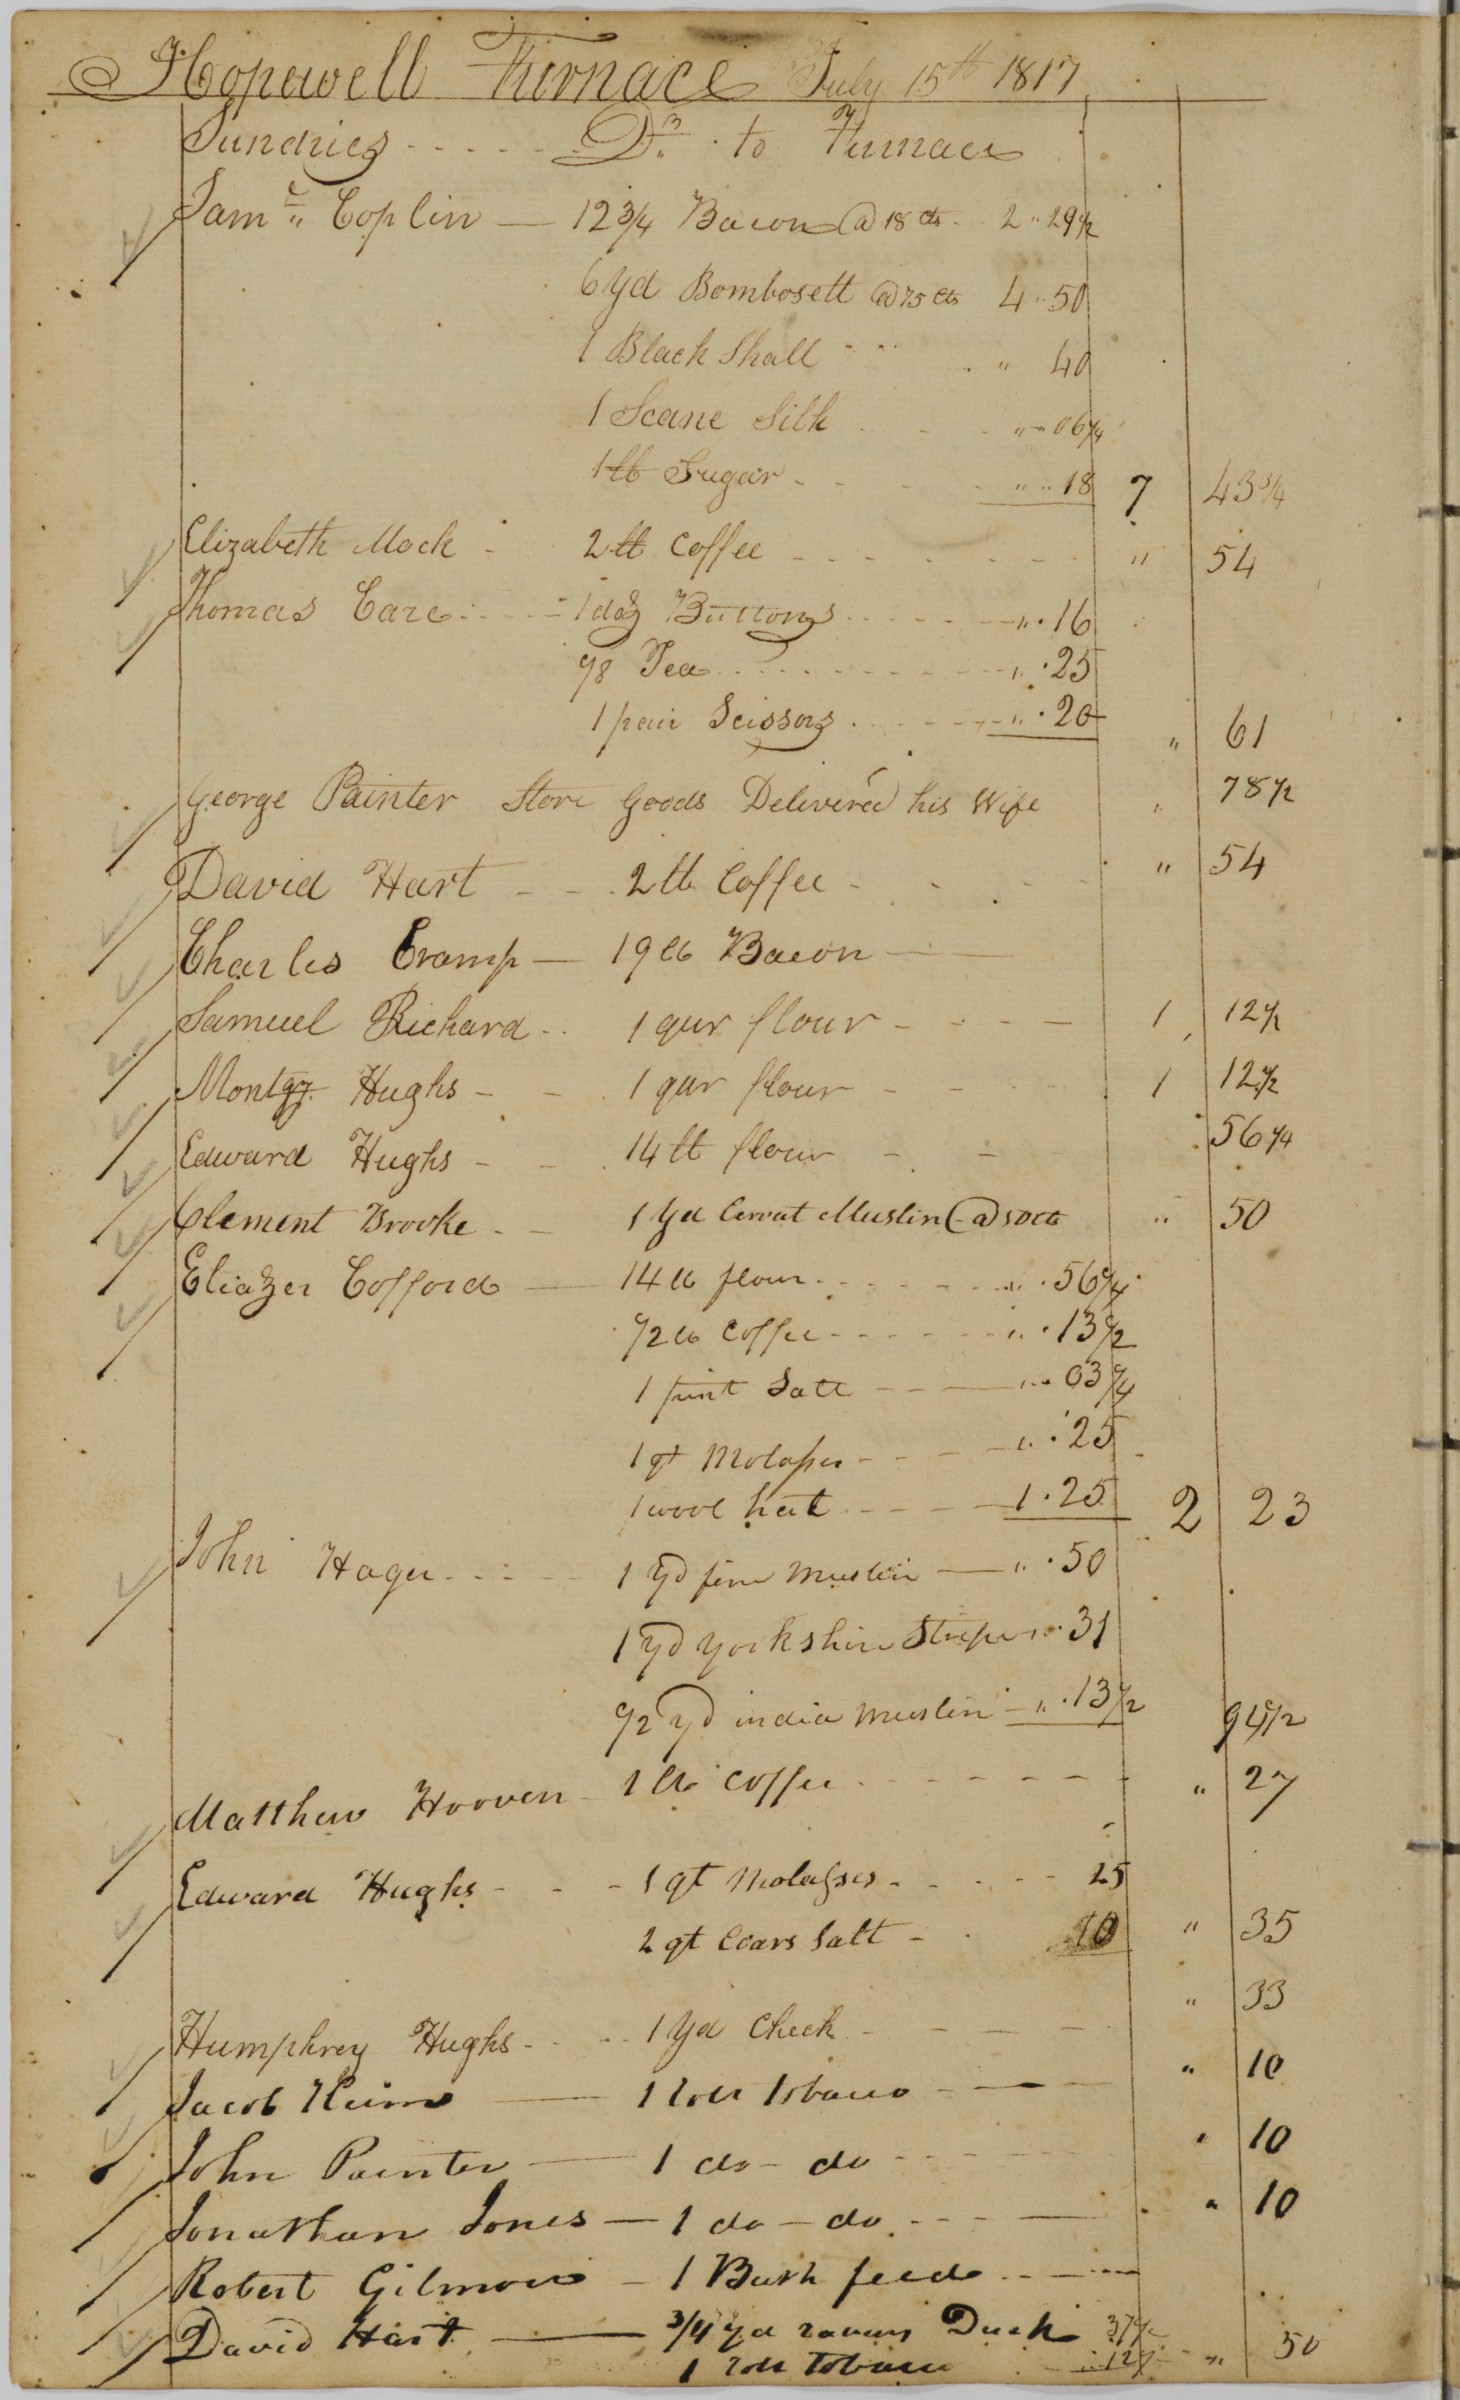 Hopewell Furnace July 15th 1817
Sundries Dr. to Furnace
Saml. Coplin — 12 3/4 Bacon @ 18 cts 2 " 29 1/2
6 yd Bombosett @ 75 Cts 4 " 50
1 Black Shall " 40
1 Scane Silk " 06 1/4
1 lb Sugar " 18 7 43 3/4
Elizabeth Mock 2 lb Coffee " 54
Thomas Care 1 doz Buttons " 16
1/8 Tea " 25
1 pair Scissors " 20 " 61
George Painter Store Goods Deliver'd his Wife " 78 1/2
David Hart 2 lb Coffee " 54
Charles Cramp — 19 lb Bacon
Samuel Richard 1 qur flour 1 12 1/2
Montgy. Hughs 1 qur flour 1 12 1/2
Edward Hughs 14 lb flour 56 1/4
Clement Brooke 1 yd Cervat Muslin @ 50 cts " 50
Eliazer Cofford 14 lb flour " 56 1/4
1/2 lb Coffee " 13 1/2
1 pint Salt " 03 1/4
1 qt Molasses " 25
1 wool hat 1 . 25 2 23
John Hager 1 yd fine muslin — " 50
1 yd yorkshire Stripe " 31
1/2 yd india muslin " 13 1/2 94 1/2
Matthew Hooven 1 lb Coffee " 27
Edward Hughs 1 qt Molasses 25
2 qt Coars Salt 10 " 35
Humphrey Hughs 1 yd Check " 33
Jacob Heims 1 roll tobacco " 10
John Painter 1 do - do " 10
Jonathan Jones — 1 do - do " 10
Robert Gilmore 1 Bush feed
David Hart 3/4 yd ravens Duck 37 1/2
1 roll tobacco " 12 1/2 " 50